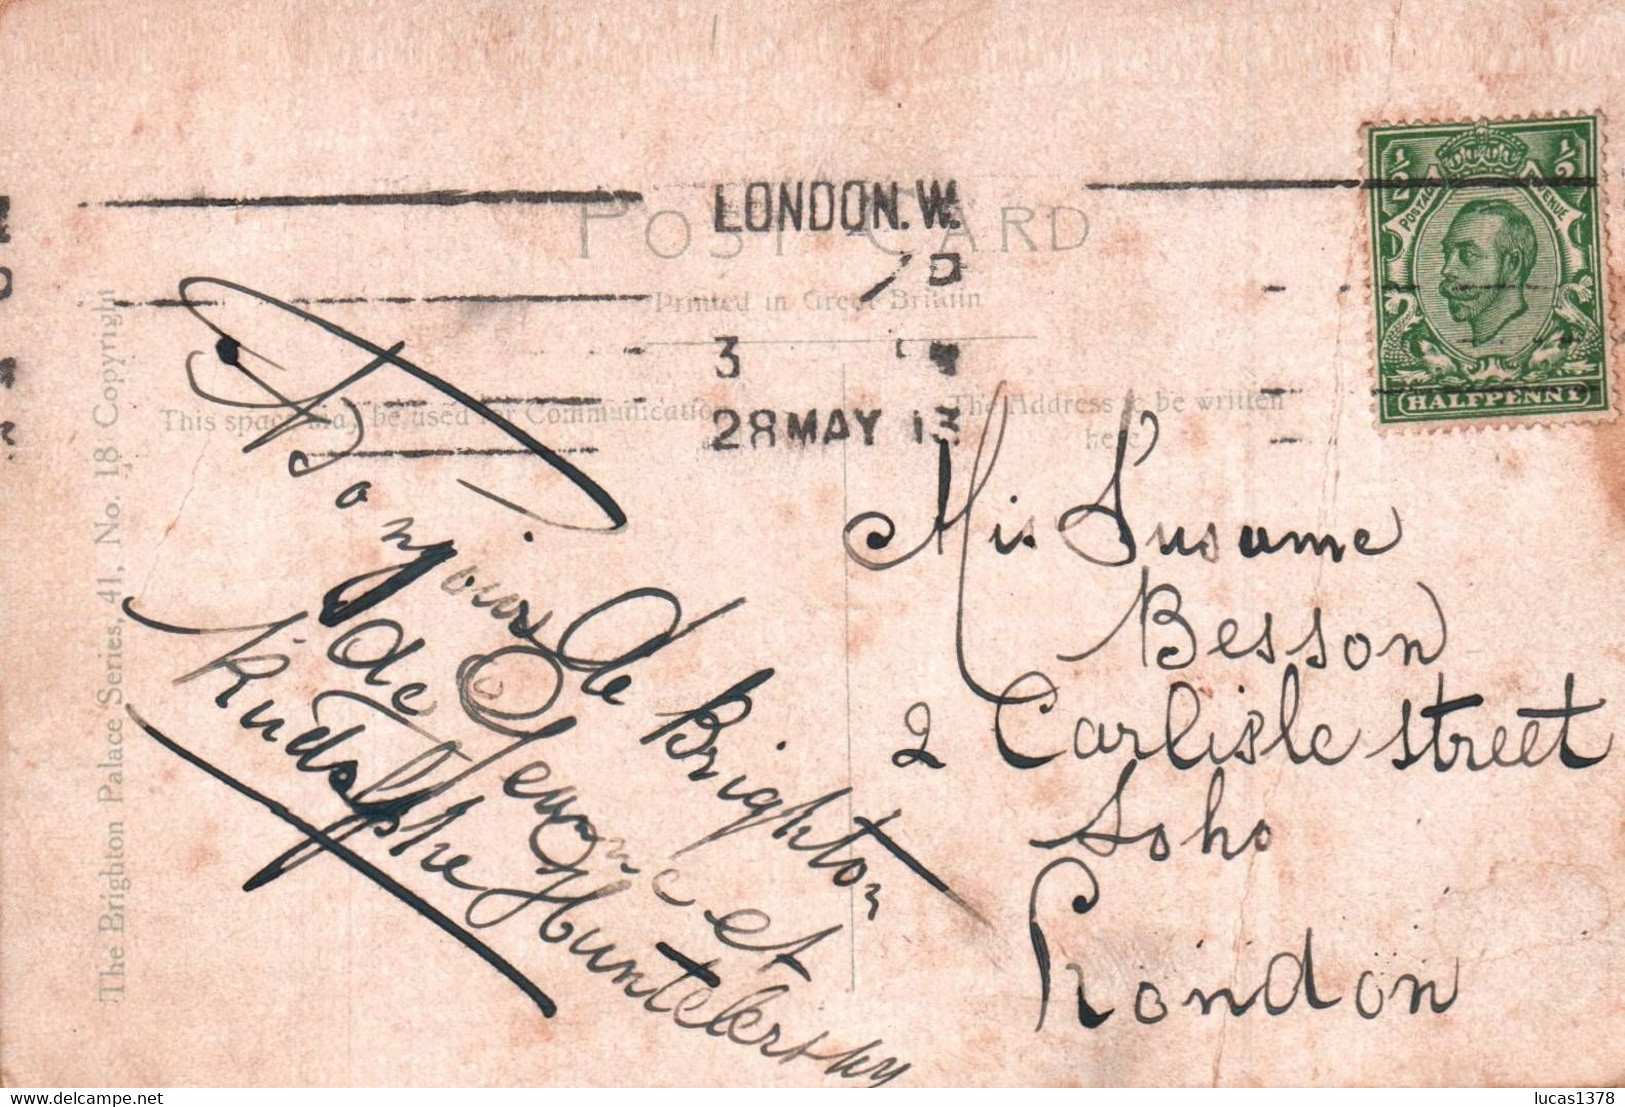 LONDON. W.
POST CARD
Printed in Great Britain
3
28 MAY 13
This space may be used for Communication
The Address to be written
here
½ ½
POSTAGE REVENUE
HALFPENNY
The Brighton Palace Series, 41, No. 18 Copyright
Bonjour de Brighton
de Jeanne et
Rudolphe
Mis Susanne
Besson
2 Carlisle street
Soho
London
lucas1378